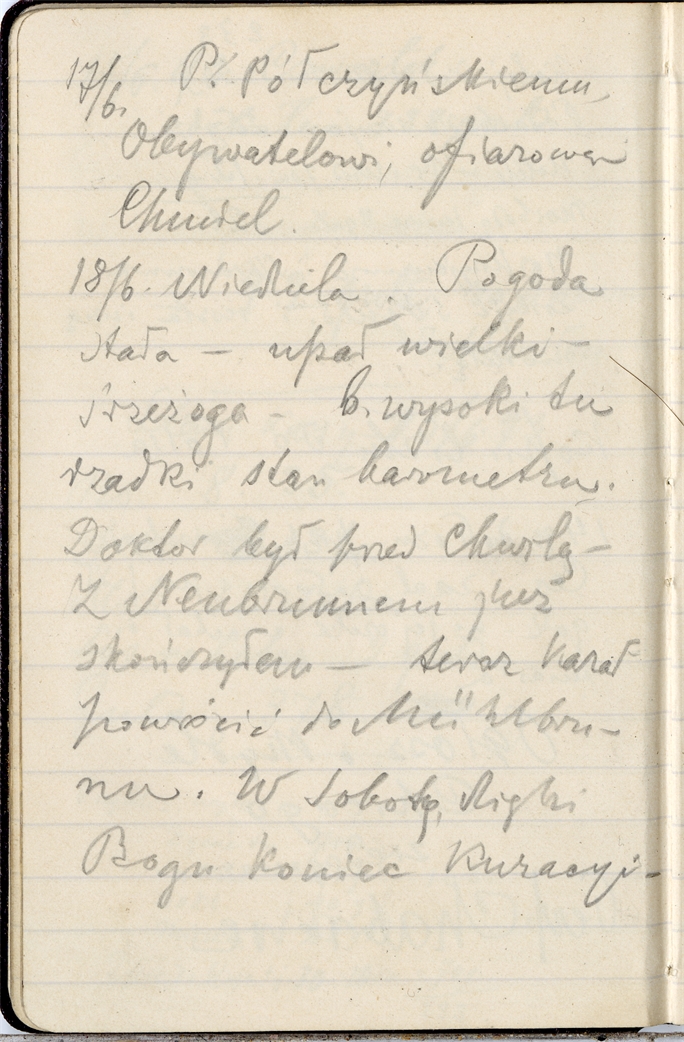 17/6. P. Półczyńskiemu,
Obywatelowi, ofiarowan
Chmiel.
18/6. Niedziela. Pogoda
stała – upał wielki –
śrzeżoga – b. wysoki tu
rzadki stan barometru.
Doktor był przed chwilą –
Z Neubrunnem już
skończyłem – teraz kazał
powrócić do Mühlbru-
nu. W Sobotę, dzięki
Bogu koniec kuracyi –